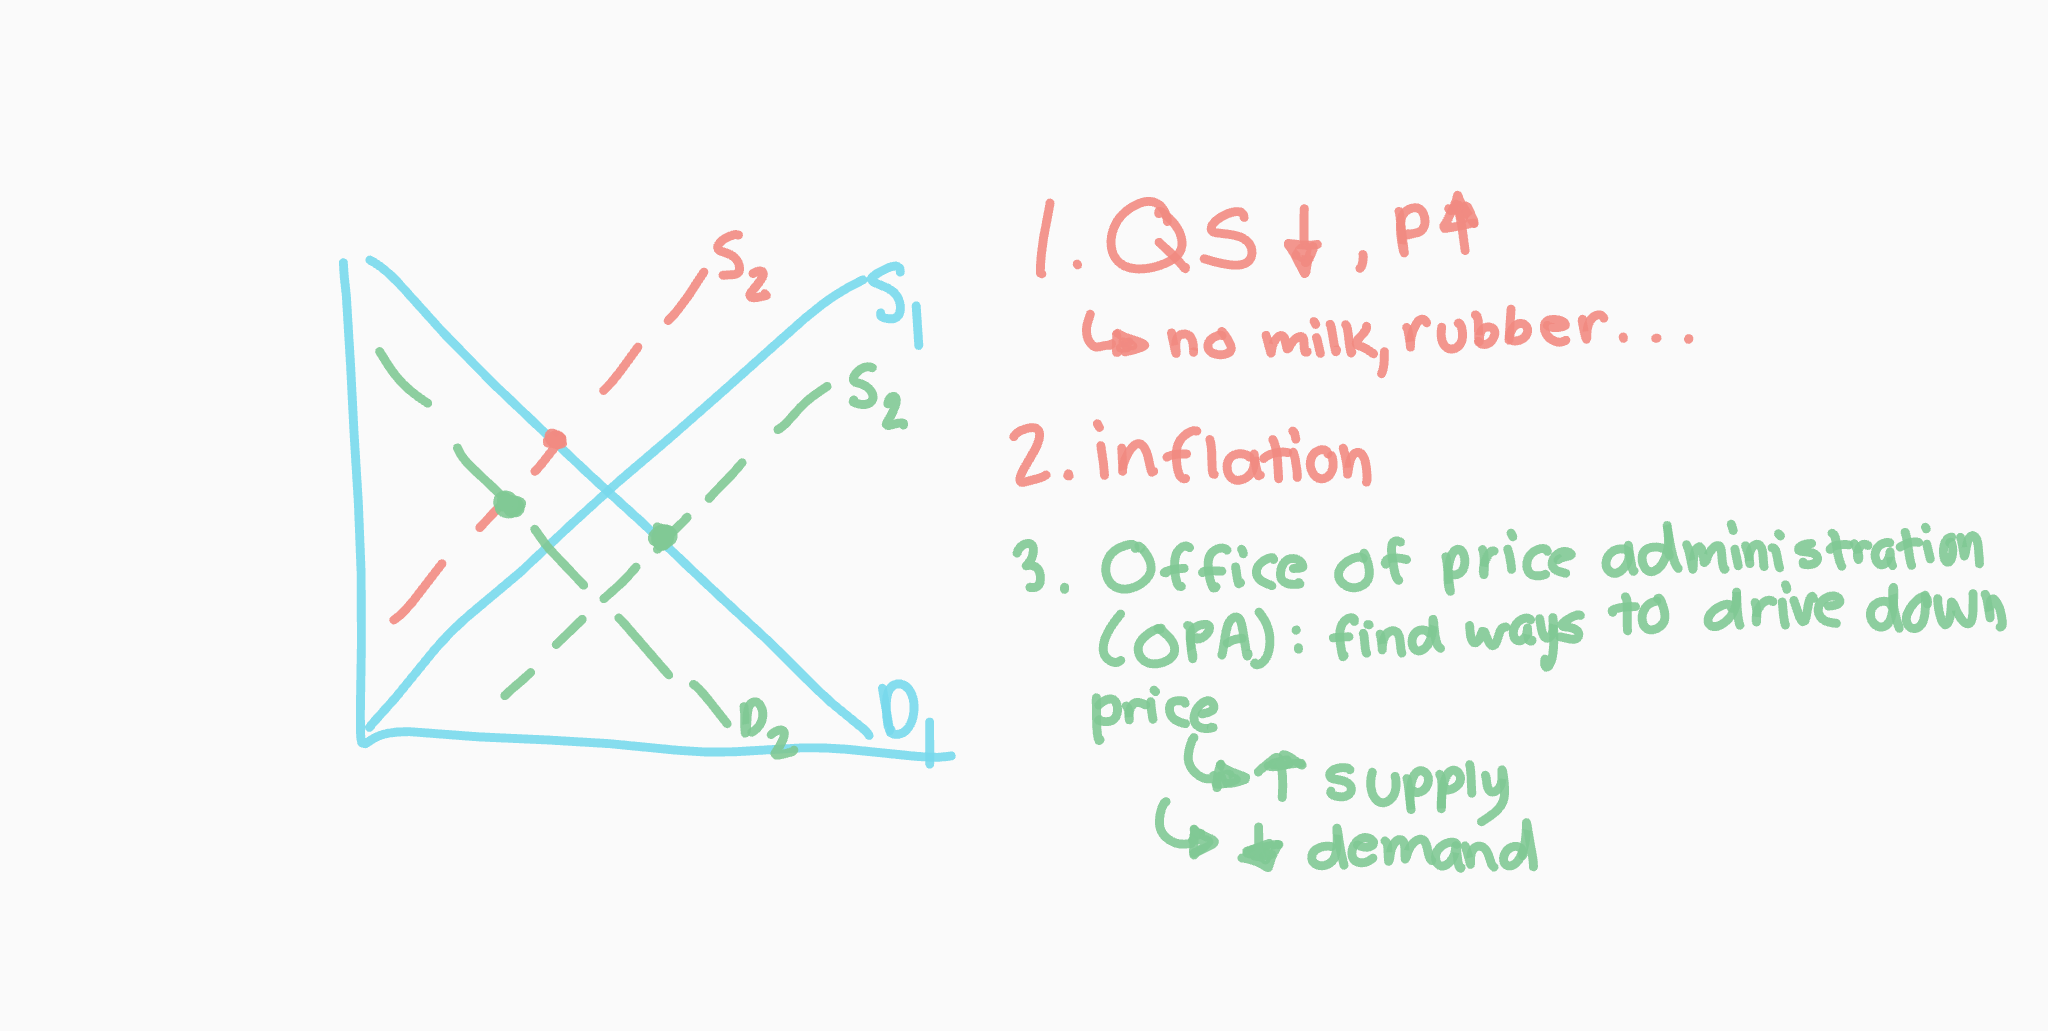 S2
S1
S2
D2
D1
1. QS ↓, P↑
↳ no milk, rubber...
2. inflation
3. Office of price administration
(OPA): find ways to drive down
price
↳ ↑ supply
↳ ↓ demand